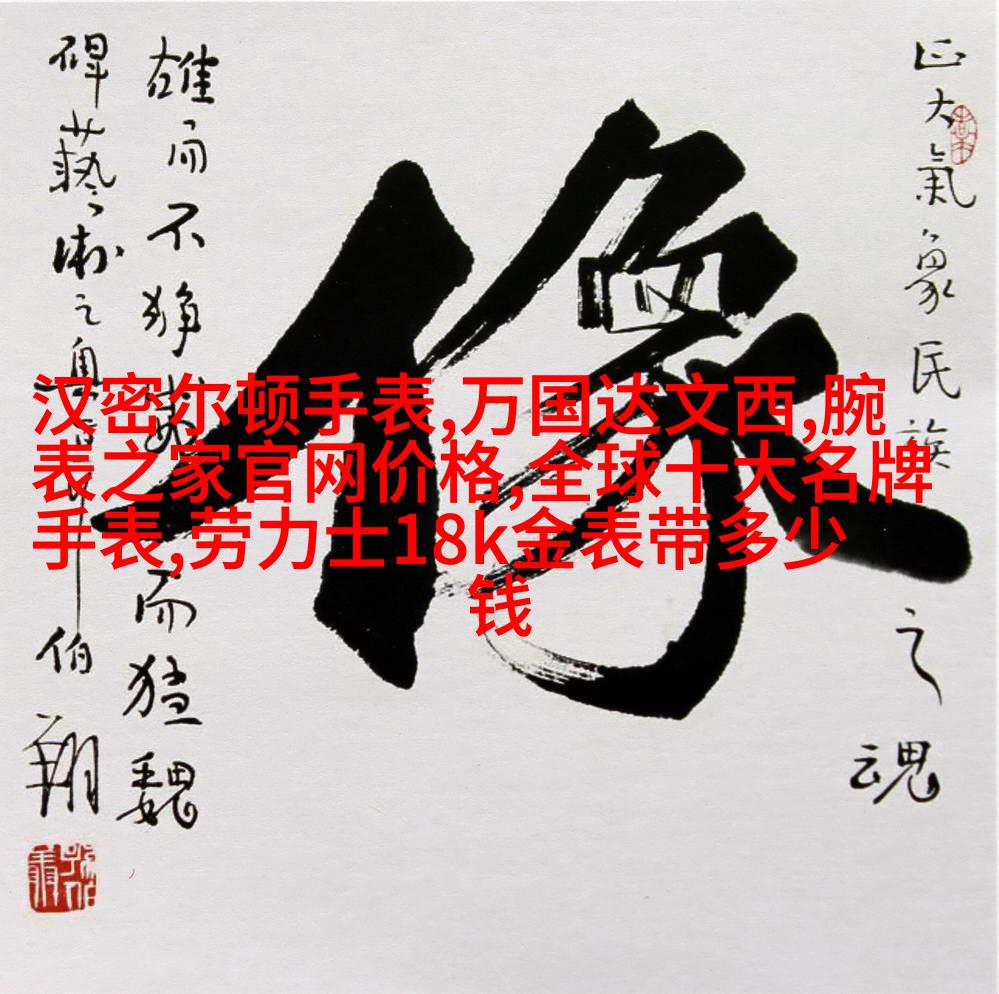 正大氣象民族之魂
像
雄而不狰
而猛魏
碑藝術之
伯翔
汉密尔顿手表,万国达文西,腕
表之家官网价格,全球十大名牌
手表,劳力士18k金表带多少
钱